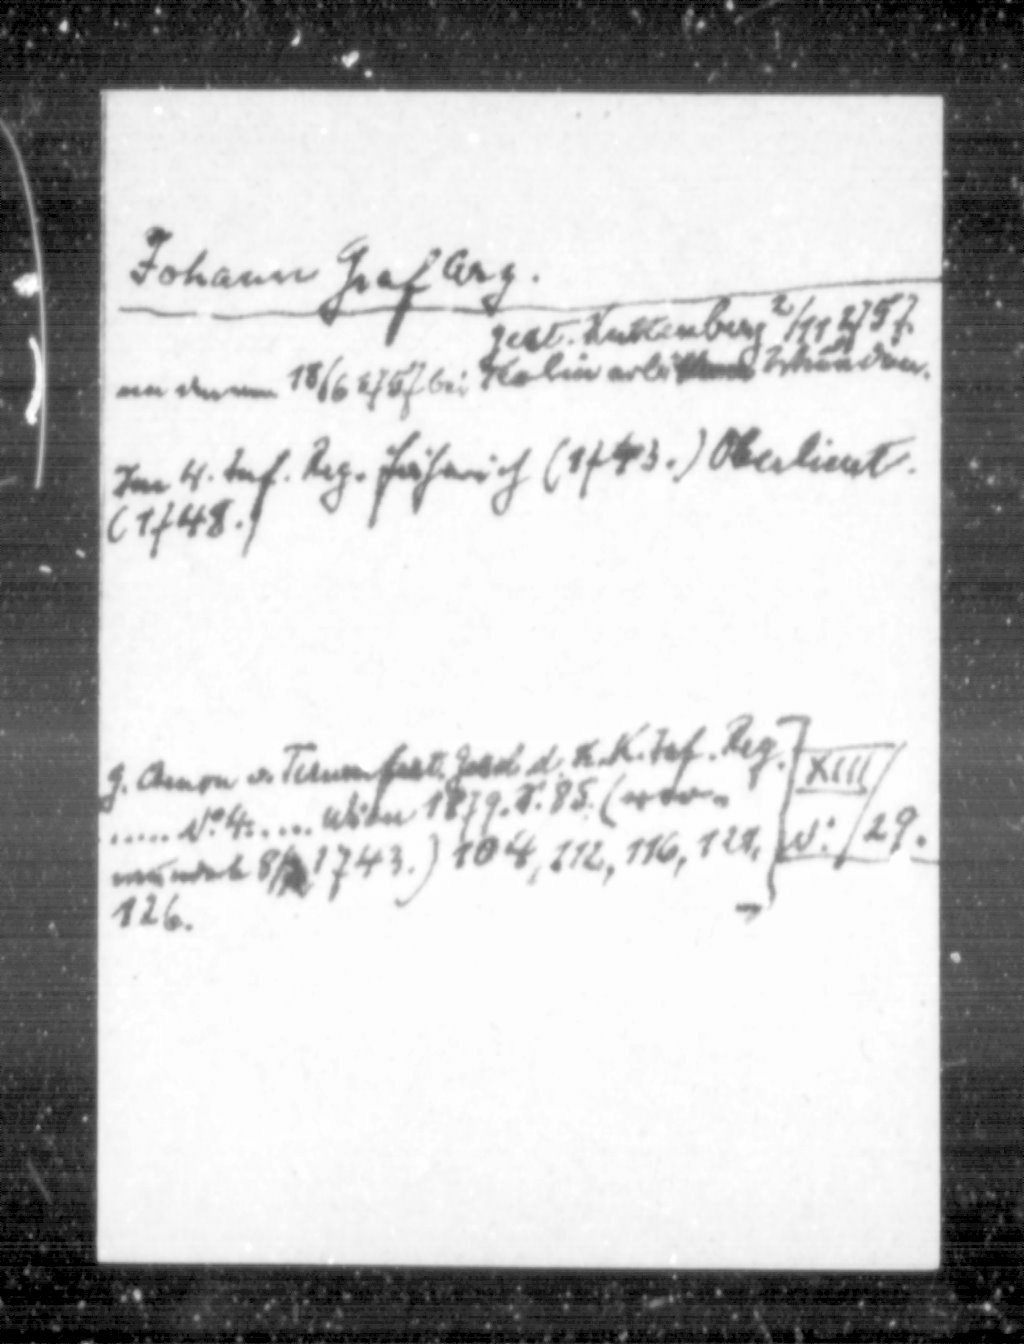 Johann Graf Arz.
gest. Kuttenberg 2/11 1757.
an den am 18/6 1757 bei Kolin erlittenen Wunden.
Im 4. Inf. Reg. Fähnrich (1743.) Oberlieut.
(1748.)
G. Amon v. Treuenfest. Gesch d. K. K. Inf. Reg.
..... No. 4. .... Wien 1879. S. 85. (ver-
wundet 8/ 1743.) 104, 112, 116, 121,
126.
XIII
29.